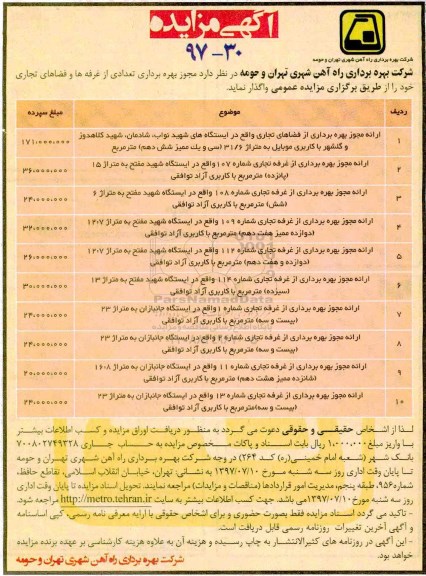 آگهی مزایده
۳۰-۹۷
شرکت بهره برداری راه آهن شهری تهران و حومه
شرکت بهره برداری راه آهن شهری تهران و حومه در نظر دارد مجوز بهره برداری تعدادی از غرفه ها و فضاهای تجاری
خود را از طریق برگزاری مزایده عمومی واگذار نماید.
ردیف موضوع مبلغ سپرده
۱ ارائه مجوز بهره برداری از فضاهای تجاری واقع در ایستگاه های شهید نواب، شادمان، شهید کلاهدوز
و گلشهر با کاربری موبایل به متراژ ۳۱/۶ (سی و یك ممیز شش دهم) مترمربع ۱۷۱،۰۰۰،۰۰۰
۲ ارائه مجوز بهره برداری از غرفه تجاری شماره ۱۰۷ واقع در ایستگاه شهید مفتح به متراژ ۱۵
(پانزده) مترمربع با کاربری آزاد توافقی ۳۶،۰۰۰،۰۰۰
۳ ارائه مجوز بهره برداری از غرفه تجاری شماره ۱۰۸ واقع در ایستگاه شهید مفتح به متراژ ۶
(شش) مترمربع با کاربری آزاد توافقی ۲۴،۰۰۰،۰۰۰
۴ ارائه مجوز بهره برداری از غرفه تجاری شماره ۱۰۹ واقع در ایستگاه شهید مفتح به متراژ ۱۲/۷
(دوازده ممیز هفت دهم) مترمربع با کاربری آزاد توافقی ۳۲،۰۰۰،۰۰۰
۵ ارائه مجوز بهره برداری از غرفه تجاری شماره ۱۱۲ واقع در ایستگاه شهید مفتح به متراژ ۱۲/۷
(دوازده و هفت دهم) مترمربع با کاربری آزاد توافقی ۲۶،۰۰۰،۰۰۰
۶ ارائه مجوز بهره برداری از غرفه تجاری شماره ۱۱۴ واقع در ایستگاه شهید مفتح به متراژ ۱۳
(سیزده) مترمربع با کاربری آزاد توافقی ۳۰،۰۰۰،۰۰۰
۷ ارائه مجوز بهره برداری از غرفه تجاری شماره ۱ واقع در ایستگاه جانبازان به متراژ ۲۳
(بیست و سه) مترمربع با کاربری آزاد توافقی ۲۴،۰۰۰،۰۰۰
۸ ارائه مجوز بهره برداری از غرفه تجاری شماره ۲ واقع در ایستگاه جانبازان به متراژ ۲۳
(بیست و سه) مترمربع با کاربری آزاد توافقی ۲۴،۰۰۰،۰۰۰
۹ ارائه مجوز بهره برداری از غرفه تجاری شماره ۱۱ واقع در ایستگاه جانبازان به متراژ ۱۶/۸
(شانزده ممیز هشت دهم) مترمربع با کاربری آزاد توافقی ۲۰،۰۰۰،۰۰۰
۱۰ ارائه مجوز بهره برداری از غرفه تجاری شماره ۱۳ واقع در ایستگاه جانبازان به متراژ ۲۳
(بیست و سه) مترمربع با کاربری آزاد توافقی ۲۴،۰۰۰،۰۰۰
ParsNamadData
لذا از اشخاص حقیقی و حقوقی دعوت می گردد به منظور دریافت اوراق مزایده و کسب اطلاعات بیشتر
با واریز مبلغ ۱،۰۰۰،۰۰۰ ریال بابت اسناد و پاکات مخصوص مزایده به حساب جاری ۷۰۰۸۰۲۷۴۹۳۲۸
بانک شهر (شعبه امام خمینی(ره) کد ۲۶۴) در وجه شرکت بهره برداری راه آهن شهری تهران و حومه
تا پایان وقت اداری روز سه شنبه مورخ ۱۳۹۷/۰۷/۱۰ به نشانی: تهران، خیابان انقلاب اسلامی، تقاطع حافظ،
شماره ۹۵۶، طبقه پنجم، مدیریت امور قراردادها (مناقصات و مزایدات) مراجعه نمایند. تحویل اسناد مزایده تا پایان وقت اداری
روز سه شنبه مورخ ۱۳۹۷/۰۷/۱۰ می باشد. جهت کسب اطلاعات بیشتر به سایت http://metro.tehran.ir مراجعه شود.
- تاکید می گردد اسناد مزایده فقط بصورت حضوری و برای اشخاص حقوقی با ارایه معرفی نامه رسمی، کپی اساسنامه
و آگهی آخرین تغییرات روزنامه رسمی قابل دریافت است.
- این آگهی در روزنامه های کثیرالانتشار به چاپ رسیده و هزینه آن به علاوه هزینه کارشناسی بر عهده برنده مزایده
خواهد بود.
شرکت بهره برداری راه آهن شهری تهران و حومه